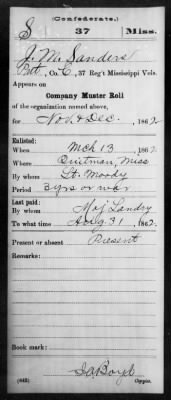 (Confederate.)
S 37 Miss.
J. M. Sanders
Pvt, Co. C, 37 Reg't Mississippi Vols.
Appears on
Company Muster Roll
of the organization named above,
for Nov. & Dec., 1862
Enlisted:
When Mch 13, 1862
Where Quitman, Miss
By whom Lt. Moody
Period 3 yrs or war
Last paid:
By whom Maj Landry
To what time Aug. 31, 1862.
Present or absent Present
Remarks:
Book mark:
(642) Copyist.